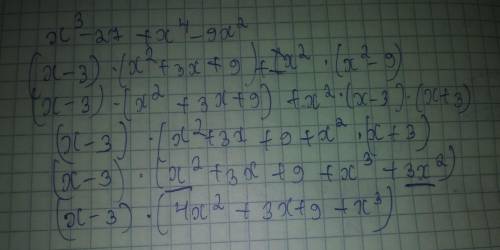 x³ - 27 + x⁴ - 9x²
(x-3) · (x² + 3x + 9) + x² · (x² - 9)
(x-3) · (x² + 3x + 9) + x² · (x-3) · (x+3)
(x-3) · (x² + 3x + 9 + x² · (x+3)
(x-3) · (x² + 3x + 9 + x³ + 3x²)
(x-3) · (4x² + 3x + 9 + x³)